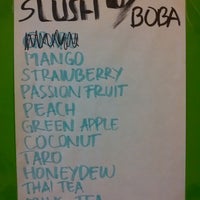 SLUSH W/
BOBA
MANGO
STRAWBERRY
PASSION FRUIT
PEACH
GREEN APPLE
COCONUT
TARO
HONEYDEW
THAI TEA
MILK TEA